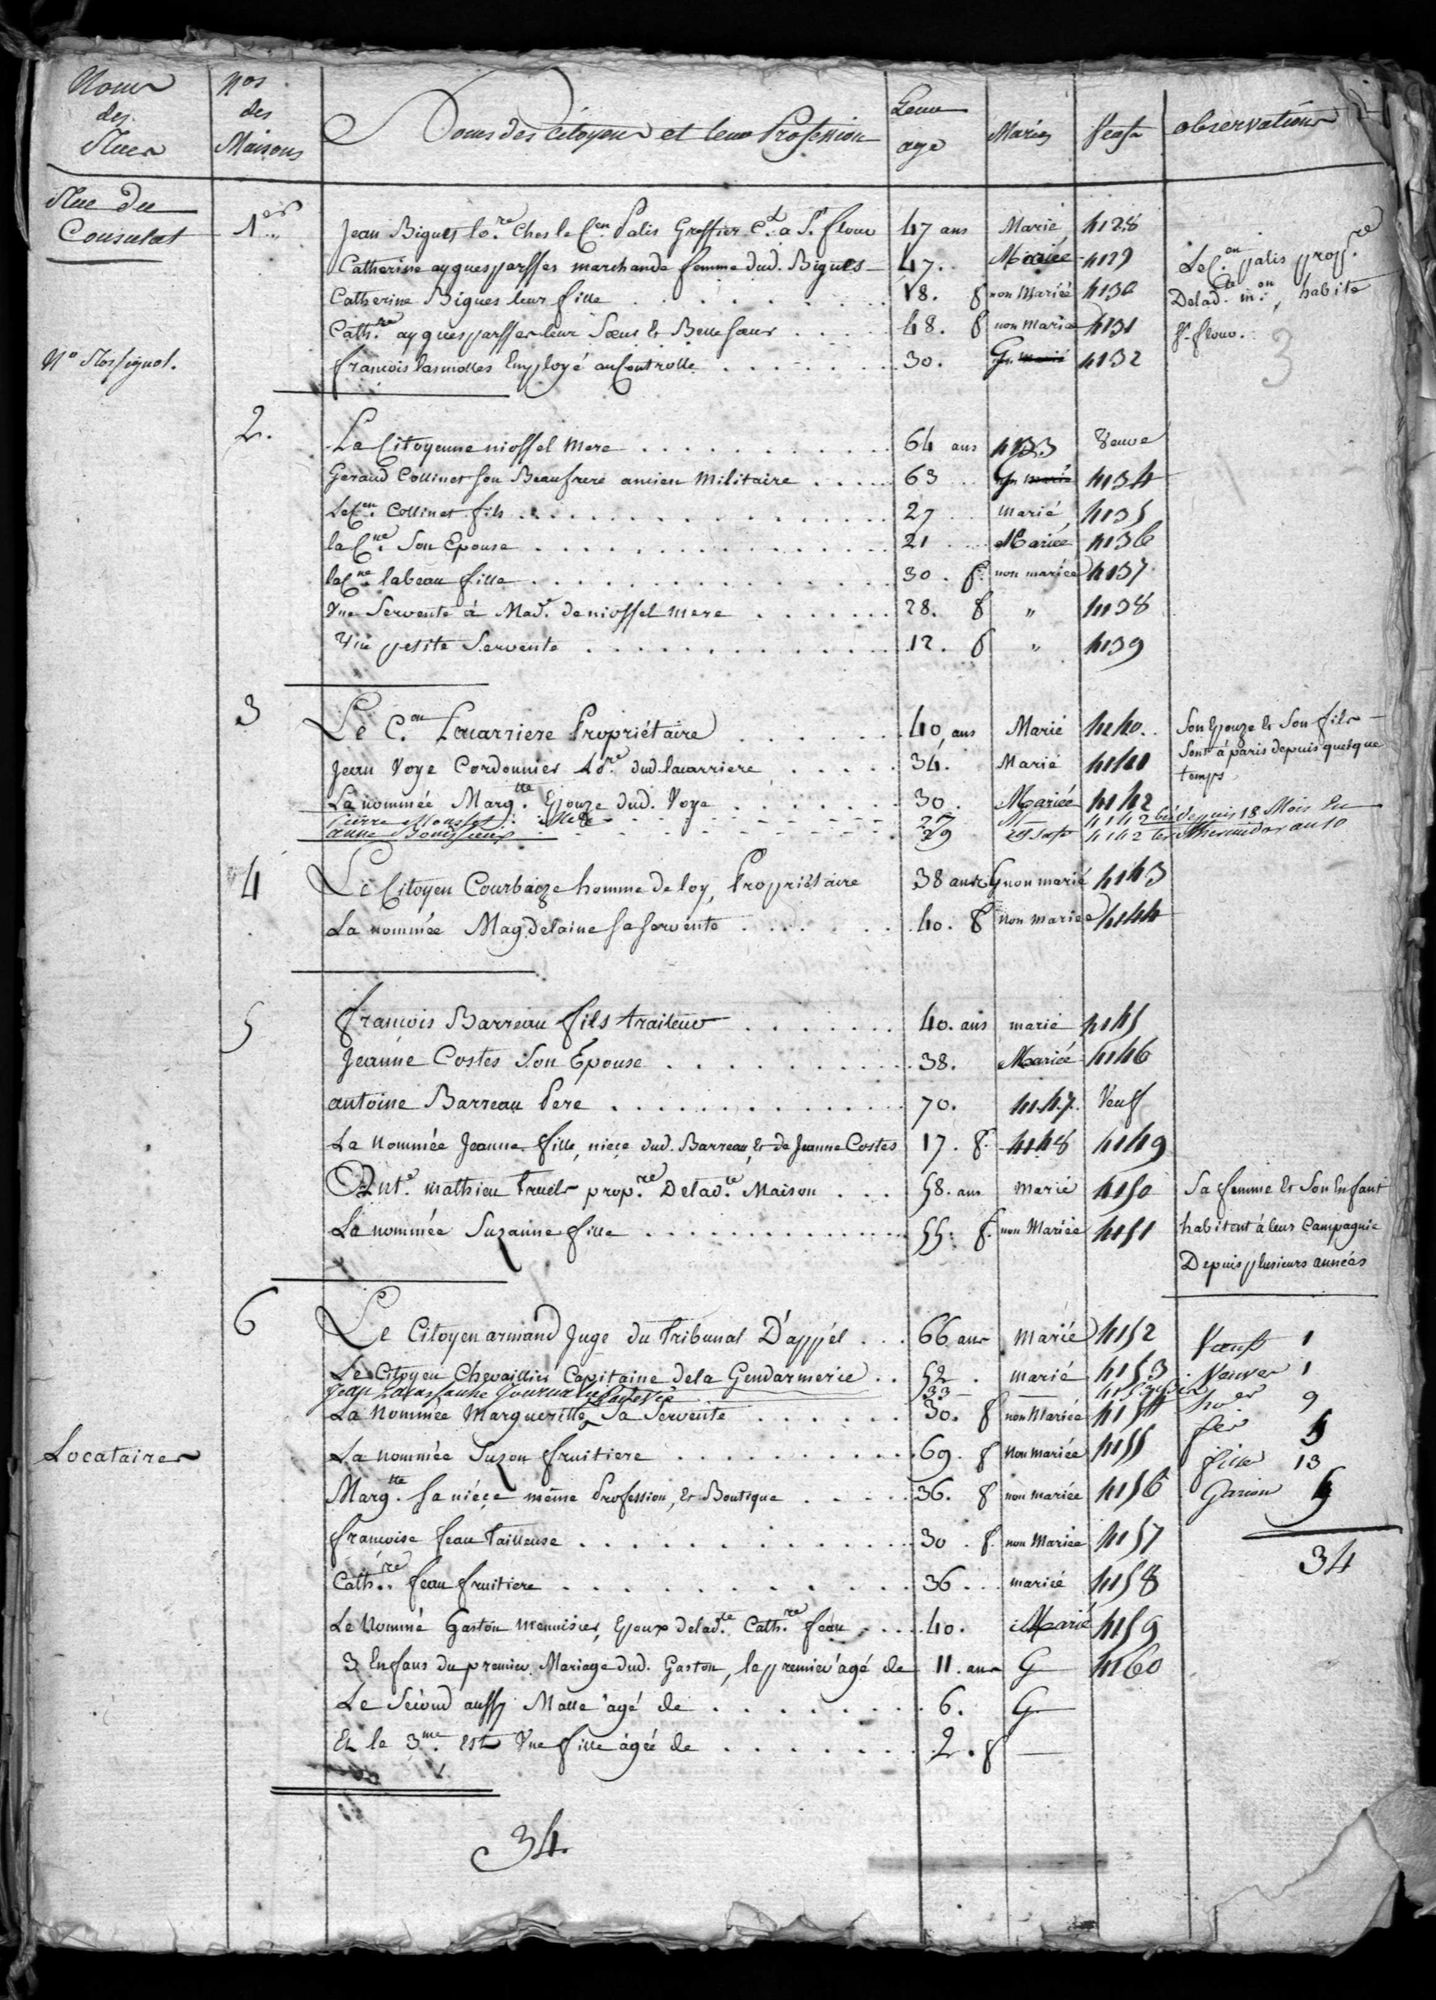 Noms des Rues
Nos des Maisons
Noms des Citoyens et leur Profession
Leur age
Mariés
Veufs
observations
Rue du Consulat
1er Jean Bigues lo.re Ches le C.en Palis Greffier C.d a S.t flour 47 ans Marié 4128
Catherine ayguesparsses marchande femme dud. Bigues 47. Mariée 4129
Le C.en palis prop.re
Catherine Bigues leur fille 18. f non Mariée 4130
Delad.te m.on, habite
Cath.re ayguesparsses leur Sœur & Belle sœur 48. f non Mariée 4131
S.t flour.
3
N.o Rossignol.
francois lasmolles Employé au Controlle 30. G 4132
2. La Citoyenne nioffel Mere 64 ans 4133 Veuve
Geraud Collinet son Beaufrere ancien Militaire 63 G 4134
Le C.en Collinet fils 27 marié 4135
la C.ne Son Epouse 21 Mariée 4136
la C.ne labeau fille 30. f. non mariée 4137
Une Servente à Mad.e de nioffel mere 28. f „ 4138
Une petite Servente 12. f „ 4139
3 Le C.en Lacarriere Propriétaire 40 ans Marié 4140.
Son Epouze & Son fils
Sont à paris depuis quelque
temps.
Jean Voye Cordonnier Lo.re dud. lacarriere 34. Marié 4141
La nommée Marg.tte Epouze dud. Voye 30. Mariée 4142
27 4142 bis depuis 18 Mois En
29 4142 ter thermidor an 10
4 Le Citoyen Courbaize homme de loy, Propriétaire 38 ans G non marié 4143
La nommée Magdelaine sa servente 40. f non mariée 4144
5 francois Barreau fils traiteur 40. ans marié 4145
Jeanne Costes Son Epouse 38. Mariée 4146
antoine Barreau Pere 70. 4147. Veuf
La Nommée Jeanne fille, niece dud. Barreau, & de Jeanne Costes 17. f. 4148 4149
Ant.e mathieu Truel prop.re Delad.te Maison 58. ans marié 4150
Sa femme & Son Enfant
La nommée Suzanne fille 55. f. non Mariée 4151
habitent à leur Campagnie
Depuis plusieurs années
6 Le Citoyen armand Juge du Tribunal D'appel 66 ans marié 4152
Veufs 1
Le Citoyen Chevaillier Capitaine dela Gendarmerie 52. marié 4153
Veuves 1
33
La Nommée Marguerille Sa Servente 30. f non Mariée 4154
ho.es 9
fes 5
Locataires
La nommée Suzon fruitiere 69. f Non mariée 4155
filles 13
Marg.tte sa niece même Profession, & Boutique 36. f non mariée 4156
Garcons 5
francoise feau Tailleuse 30. f. non Mariée 4157
34
Cath.re feau fruitiere 36 mariée 4158
Le Nommé Gaston menuisier, Epoux delad.te Cath.re feau 40. Marié 4159
3 Enfans du premier Mariage dud. Gaston, le premier agé de 11. ans G 4160
Le Sécond aussy Malle agé de 6. G
Et le 3me Est Une fille agée de 2. f
34.